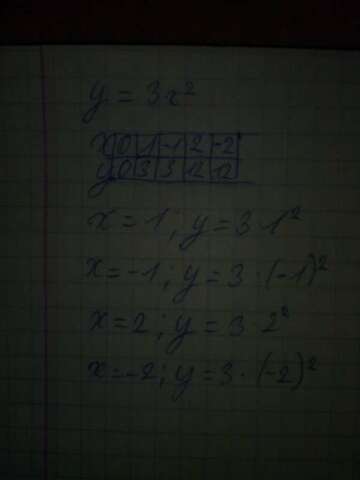 y = 3x²
x 0 1 -1 2 -2
y 0 3 3 12 12
x = 1 ; y = 3 · 1²
x = -1 ; y = 3 · (-1)²
x = 2 ; y = 3 · 2²
x = -2 ; y = 3 · (-2)²